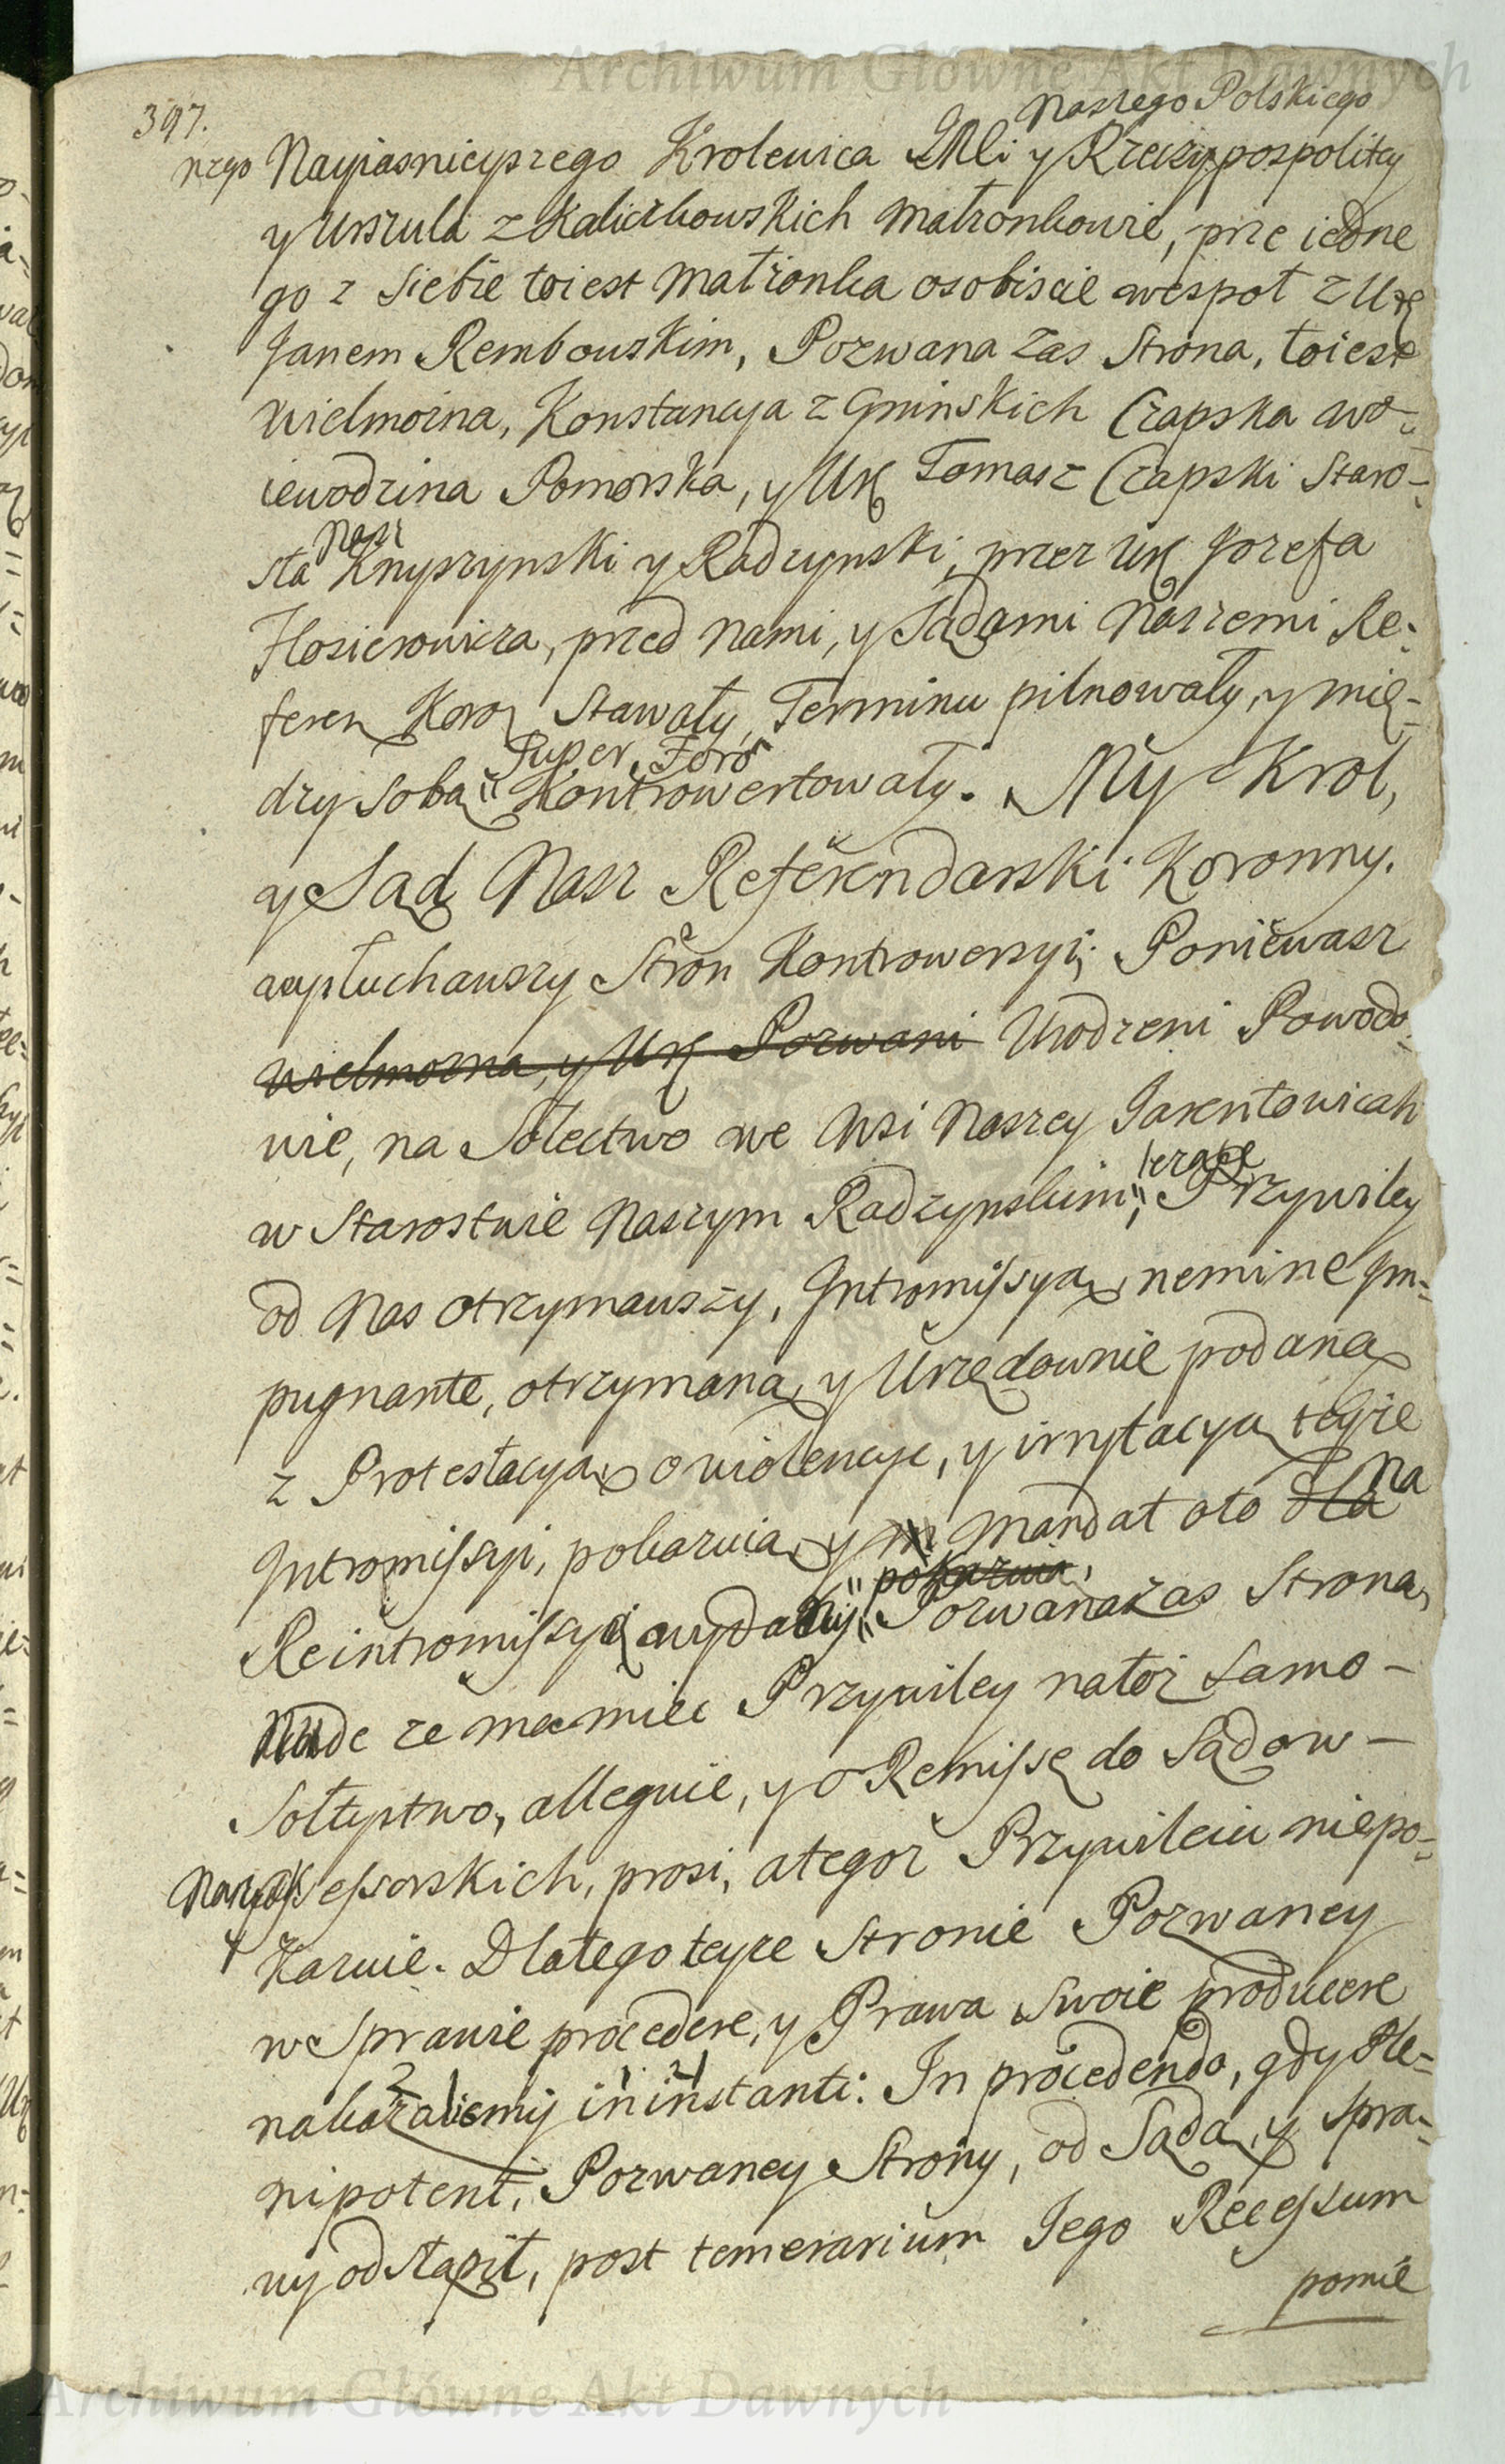 Archiwum Główne Akt Dawnych
397.
Naszego Polskiego
nzgo Nayiasnieyszego Krolewica JMci y Rzeczypospolitey
y Urszula z Kalickowskich Małzonkowie, prze iedne
go z siebie toiest Małzonka osobiscie wespoł z Ur
Janem Rembowskim, Pozwana zas Strona, toiest
Wielmozna, Konstancya z Gninskich Czapska Wo-
iewodzina Pomorska, y Ur Tomasz Czapski Staro-
Nasz
sta Knyszynski y Radzynski, przez Ur Jozefa
Hosierowicza, przed Nami, y Sądami Naszemi Re-
feren Koro Stawały, Terminu pilnowały, y mię-
Super Foro
dzy sobą Kontrowertowały. My Krol,
y Sąd Nasz Referendarski Koronny.
wysłuchawszy Stron Kontrowersyi; Poniewasz
Wielmozna, y Ur Pozwani Urodzeni Powodo
wie, na Solectwo we Wsi Naszey Jarentowicach
lezące
w Starostwie Naszym Radzynskim, Przywiley
od Nas otrzymawszy, Intromissyą, nemine Im-
pugnante, otrzymaną, y Urzędownie podaną
z Protestacyą o violencye, y irrytacyą teyze
Intromissyi, pokazuią, y Mandat oto dla Na
pokazuią,
Reintromissyi wydany Pozwana zas Strona,
Nude ze ma mieć Przywiley natoż samo-
Sołtystwo, alleguie, y o Remissę do Sądow-
Naszych Assessorskich, prosi, a tegoż Przywileiu niepo-
kazuie. Dlatego teyze Stronie Pozwaney
w Sprawie procedere, y Prawa Swoie producere
nakazalismy in instanti: In procedendo, gdy Ple-
nipotent, Pozwaney Strony, od Sądu, y Spra-
wy odstąpił, post temerarium Iego Recessum
pomie
Archiwum Główne Akt Dawnych